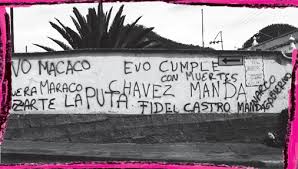 VO MACACO
ERA MARACO
ZARTE LA PUTA
EVO CUMPLE
CON MUERTES
CHAVEZ MANDA
FIDEL CASTRO MANDA